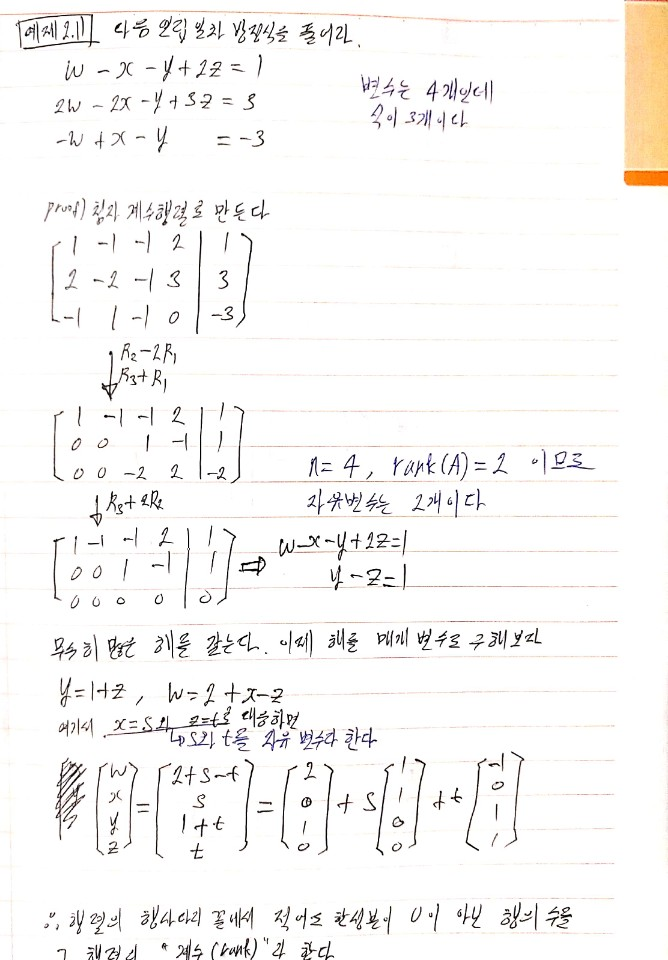 예제 2.11 다음 연립 일차 방정식을 풀어라.
w - x - y + 2z = 1
2w - 2x - y + 3z = 3
-w + x - y = -3
변수는 4개인데
식이 3개이다
proof) 첨가 계수행렬로 만든다
[ 1 -1 -1 2 | 1 ]
[ 2 -2 -1 3 | 3 ]
[ -1 1 -1 0 | -3 ]
↓ R₂-2R₁
R₃+R₁
[ 1 -1 -1 2 | 1 ]
[ 0 0 1 -1 | 1 ]
[ 0 0 -2 2 | -2 ]
n=4, rank(A)=2 이므로
자유변수는 2개이다
↓ R₃+2R₂
[ 1 -1 -1 2 | 1 ]
[ 0 0 1 -1 | 1 ]
[ 0 0 0 0 | 0 ]
⇒ w-x-y+2z=1
y-z=1
무수히 많은 해를 갖는다. 이제 해를 매개 변수로 구해보자
y=1+z, w=2+x-z
여기서 x=s와 z=t로 대응하면
↳ s와 t를 자유 변수라 한다
[w x y z] = [2+s-t s 1+t t] = [2 0 1 0] + s[1 1 0 0] + t[-1 0 1 1]
∴ 행렬의 행사다리 꼴에서 적어도 한성분이 0이 아닌 행의 수를
그 행렬의 "계수(rank)"라 한다